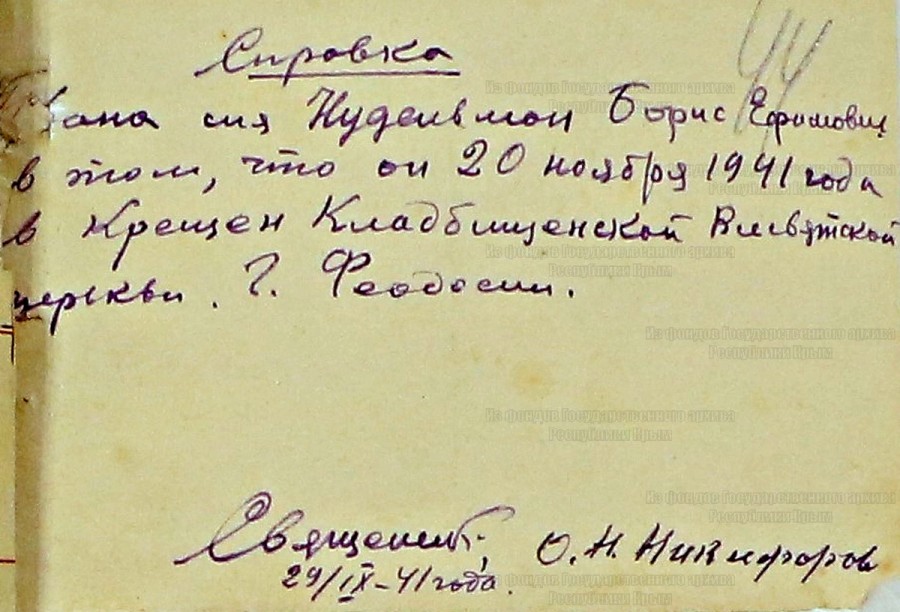 44
Справка
Дана сия Нудельман Борис Ефимович
в том, что он 20 ноября 1941 года
в крещен Кладбищенской Всевятской
церкви. Г. Феодосии.
Священник О. Н. Никифоров
29/IX-41 года.
Из фондов Государственного архива
Республики Крым
Из фондов Государственного архива
Республики Крым
Из фондов Государственного архива
Республики Крым
Из фондов Государственного архива
Республики Крым
Из фондов Государственного архива
Республики Крым
Из фондов Государственного архива
Республики Крым
Из фондов Государственного архива
Республики Крым